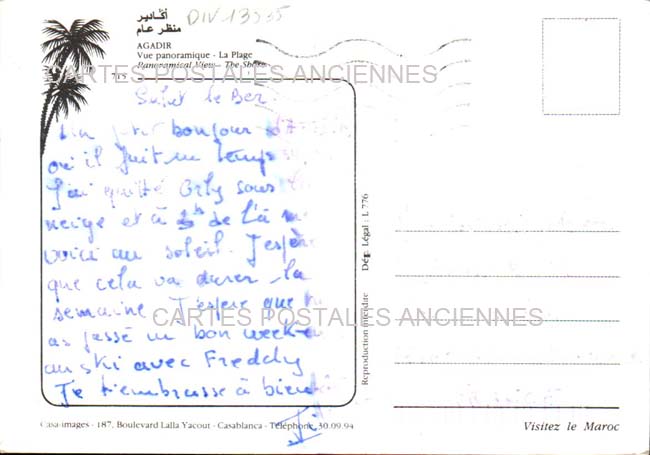 أكادير
منظر عام
DIV 13535
AGADIR
Vue panoramique - La Plage
Panoramical View - The Shore
715
CARTES POSTALES ANCIENNES
Salut le Ber.
Un petit bonjour d'A
où il fait un temps
J'ai quitté Orly sous la
neige et à 3h de là me
voici au soleil. J'espère
que cela va durer la
semaine. J'espère que
CARTES POSTALES ANCIENNES
as passé un bon week-
au ski avec Freddy
Je t'embrasse à bientôt
Reproduction interdite
Dép. Légal : L 776
Casa-images - 187, Boulevard Lalla Yacout - Casablanca - Téléphone 30.09.94
Visitez le Maroc